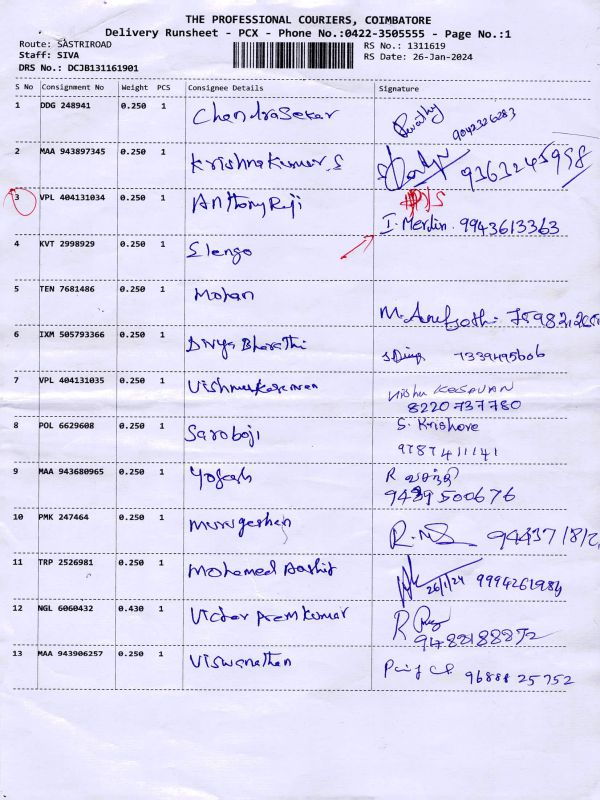 THE PROFESSIONAL COURIERS, COIMBATORE
Delivery Runsheet - PCX - Phone No.:0422-3505555 - Page No.:1
Route: SASTRIROAD RS No.: 1311619
Staff: SIVA RS Date: 26-Jan-2024
DRS No.: DCJB131161901
S No Consignment No Weight PCS Consignee Details Signature
1 DDG 248941 0.250 1 Chandrasekar
9042326283
2 MAA 943897345 0.250 1 Krishnakumar.S 9363245998
3 VPL 404131034 0.250 1 Anthony Reji
I. Merlin. 9943613363
4 KVT 2998929 0.250 1 Elengo
5 TEN 7681486 0.250 1 Mohan
6 IXM 505793366 0.250 1 Divya Bharathi 7339495606
7 VPL 404131035 0.250 1 Vishnukesavan Vishnu KESAVAN
8220737780
8 POL 6629608 0.250 1 Saroboji S. Krishore
9787411141
9 MAA 943680965 0.250 1 Yogesh R வசந்தி
9489500676
10 PMK 247464 0.250 1 Murugeshan
11 TRP 2526981 0.250 1 Mohamed Aashif 26/1/24 9994261984
12 NGL 6060432 0.430 1 Victor Premkumar
9488188872
13 MAA 943906257 0.250 1 Viswanathan 9688825752